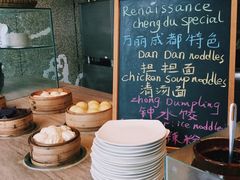 Renaissance
chengdu special
万丽成都特色
Dan Dan noodles
担担面
chicken soup noddles
清汤面
zhong Dumpling
钟水饺
rice noddle
辣粉